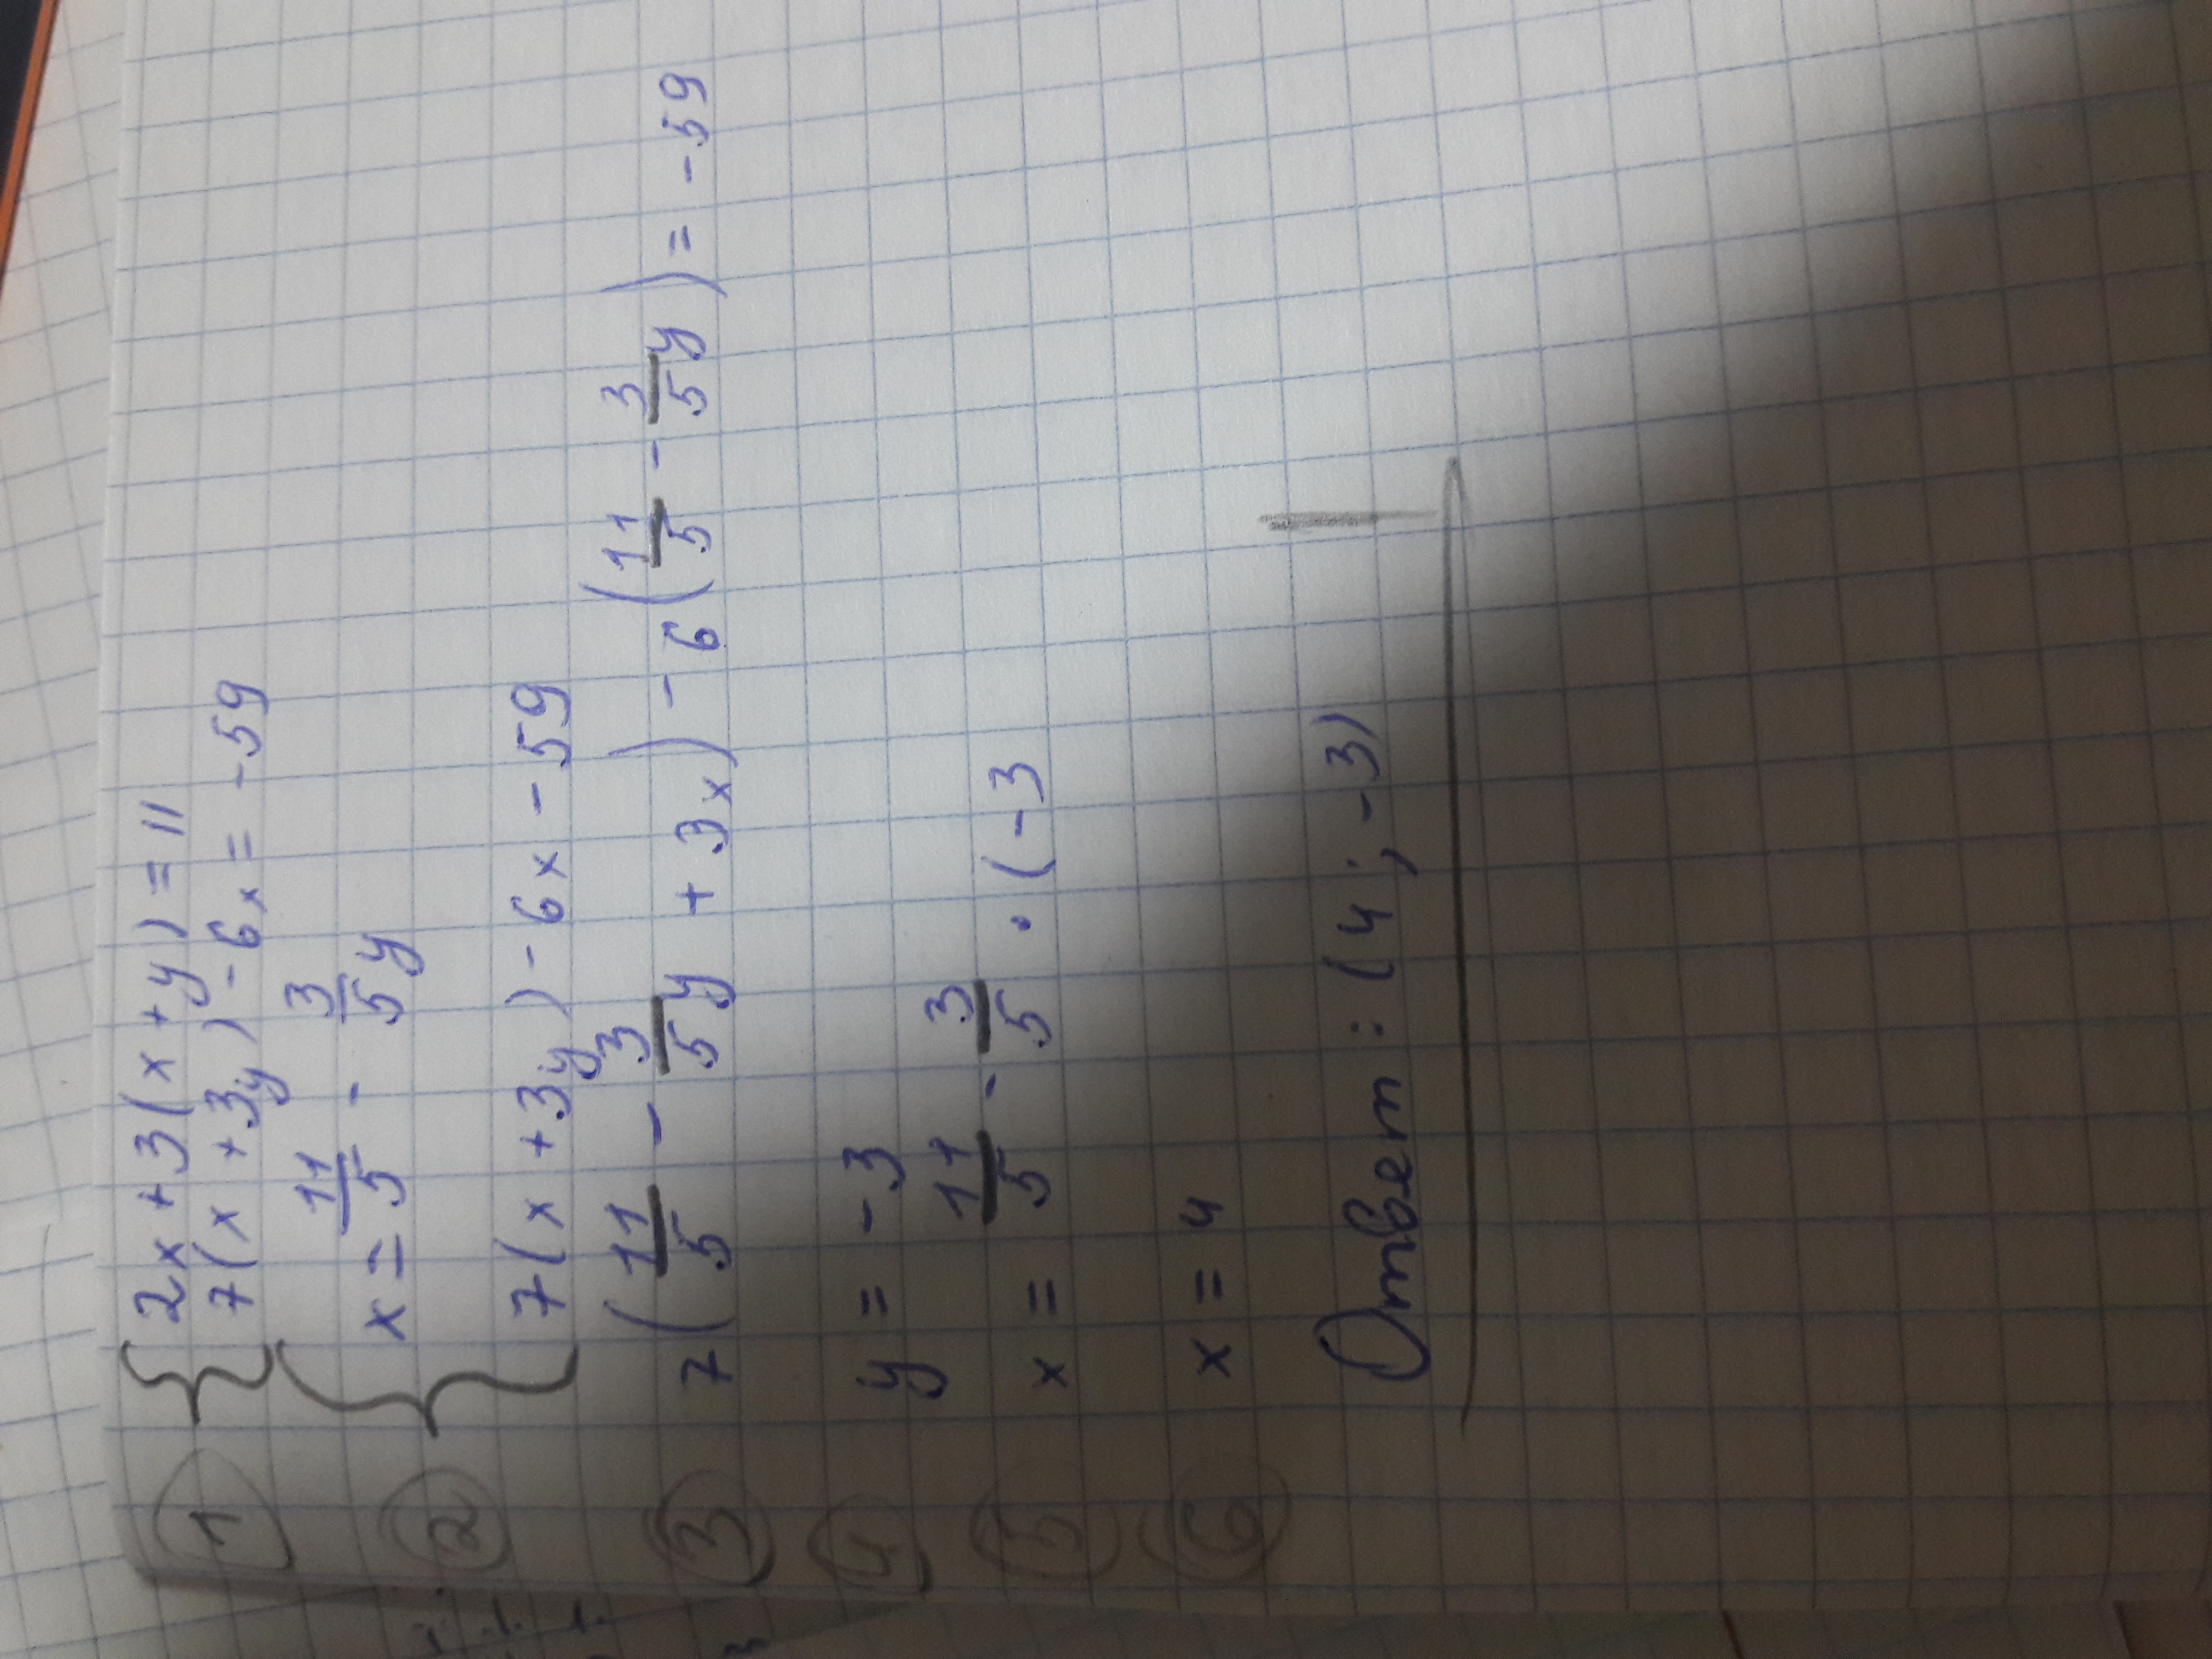 ① 2x + 3(x + y) = 11
7(x + 3y) - 6x = -59
② x = 11/5 - 3/5 y
7(x + 3y) - 6x - 59
③ 7(11/5 - 3/5 y + 3x) - 6(11/5 - 3/5 y) = -59
④ y = -3
⑤ x = 11/5 - 3/5 · (-3
⑥ x = 4
Ответ: (4; -3)